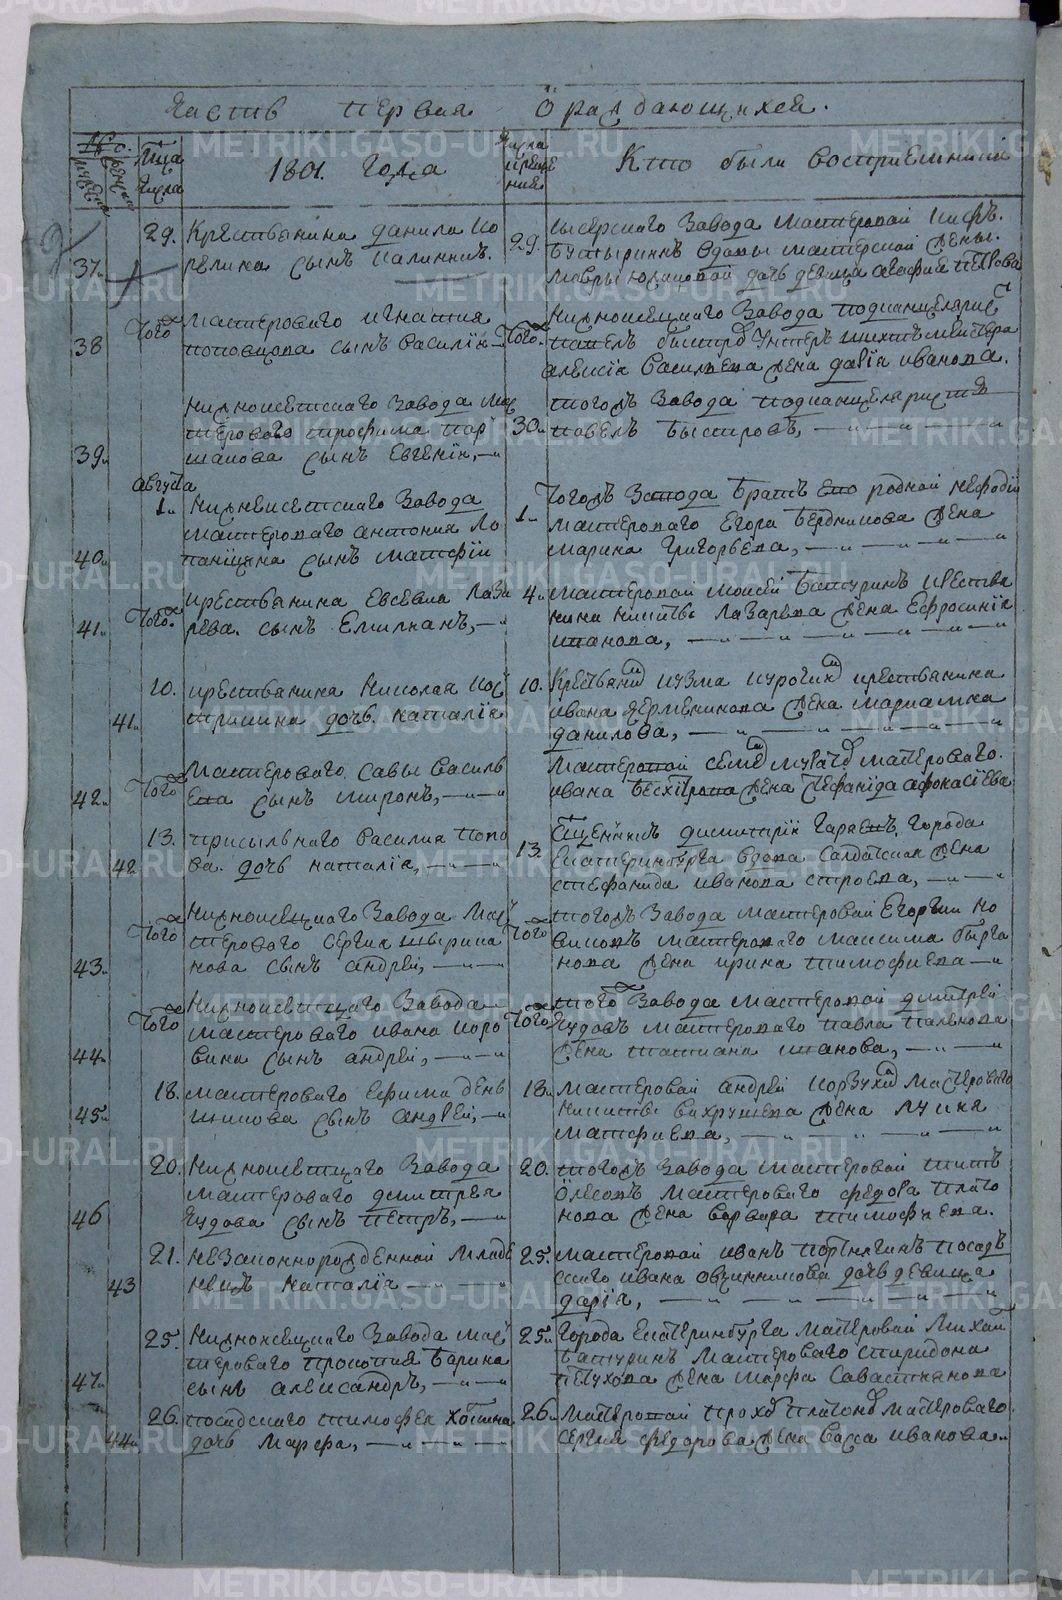 Часть первая О раждающихся.
Мца числа
1801. Года
Числа крещения
Кто были восприемники
37.
29.
Крестьянина данила Ко
релина сынъ Калинникъ.
29.
Сысерскаго Завода мастеровой
вдовы мастерской жены
Мавры дочь девица агафия петрова
38
Того ж
Мастероваго игнатия
поповцова сынъ василiй
Того ж.
Нижноисецкаго Завода подканцелярист
павелъ быстро унтеръ шихтъмейстера
алексiя васильева жена дарiя иванова.
39.
Нижноисетскаго Завода мас
терового трофима пор
шакова сынъ Евгенiй,
30.
тогожъ Завода подканцеляристъ
павелъ быстровъ,
августа
40.
1.
Нижнеисетскаго Завода
мастероваго антония Ло
паницына сынъ матфiй
1.
Тогожъ Завода братъ его родной мефодiй
мастероваго Егора бердникова жена
марина Григорьева,
41.
Того ж.
крестьянина Евсевиа Лаза
рева. сынъ Емилианъ,
4.
мастеровой моисей батуринъ крестья
нина никиты Лазарева жена Ефросинiя
иванова,
41.
10.
крестьянина Николая кос
трикина дочь. наталiя
10.
Крестьянин кузма курочкин крестьянина
ивана Дерменикова жена мариамна
данилова,
42.
Того ж
Мастероваго. савы василь
ева сынъ миронъ,
Мастеровой семен мастероваго.
ивана жена стефанiда афонасiева
42
13.
присыльнаго василия попо
ва. дочь наталiя,
13.
Сщенникъ димитрiй города
Екатеринбурга вдова салдатская жена
стефанида иванова строева,
43.
Того ж
Нижноисецкаго Завода мас
терового сергия ширина
нова сынъ андрей,
Того ж
тогожъ Завода мастеровой Егоръ но
виковъ мастероваго максима
нова жена ирина тимофиева
44.
Того ж
Нижноисецкаго Завода
мастероваго ивана коро
вина сынъ андрей,
Того ж
того ж Завода мастеровой дмитрей
Чудовъ мастероваго павла
жена татиана иванова,
45.
18.
мастероваго Ефима день
щикова сынъ андрей,
18.
мастеровой андрей корзухин мастероваго
никиты вахрушева жена лукия
матфиева,
46
20.
Нижноисетцкаго Завода
мастероваго димитрея
Чудова сынъ петръ,
20.
тогожъ Завода мастеровой титъ
мастероваго федора плато
нова жена варвара тимофиева.
43
21.
незаконнорожденной младе
нецъ наталiя
25.
мастеровой иванъ портнягинъ посадъ
скаго ивана овчинникова дочь девица
дарiя,
47.
25.
Нижноисецкаго Завода мас
тероваго прокопия барина
сынъ александръ,
25.
Города Екатеринбурга мастеровой Михаил
батуринъ мастероваго спиридона
петухова жена марфа савастианова
44.
26.
посадскаго тимофея хотина
дочь марфа,
26.
Мастеровой прохор платонов мастероваго
сергия федорова жена васса иванова.